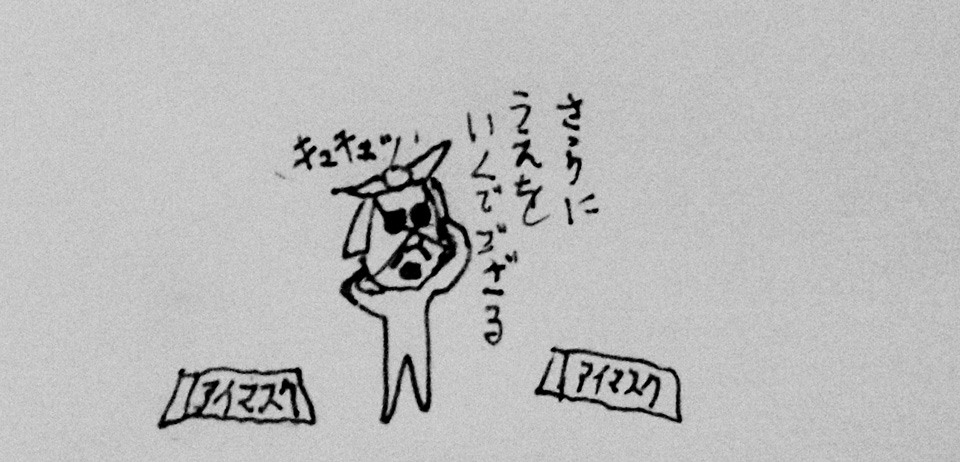 さらに
うえを
いくでござる
キュキュッ
アイマスク
アイマスク